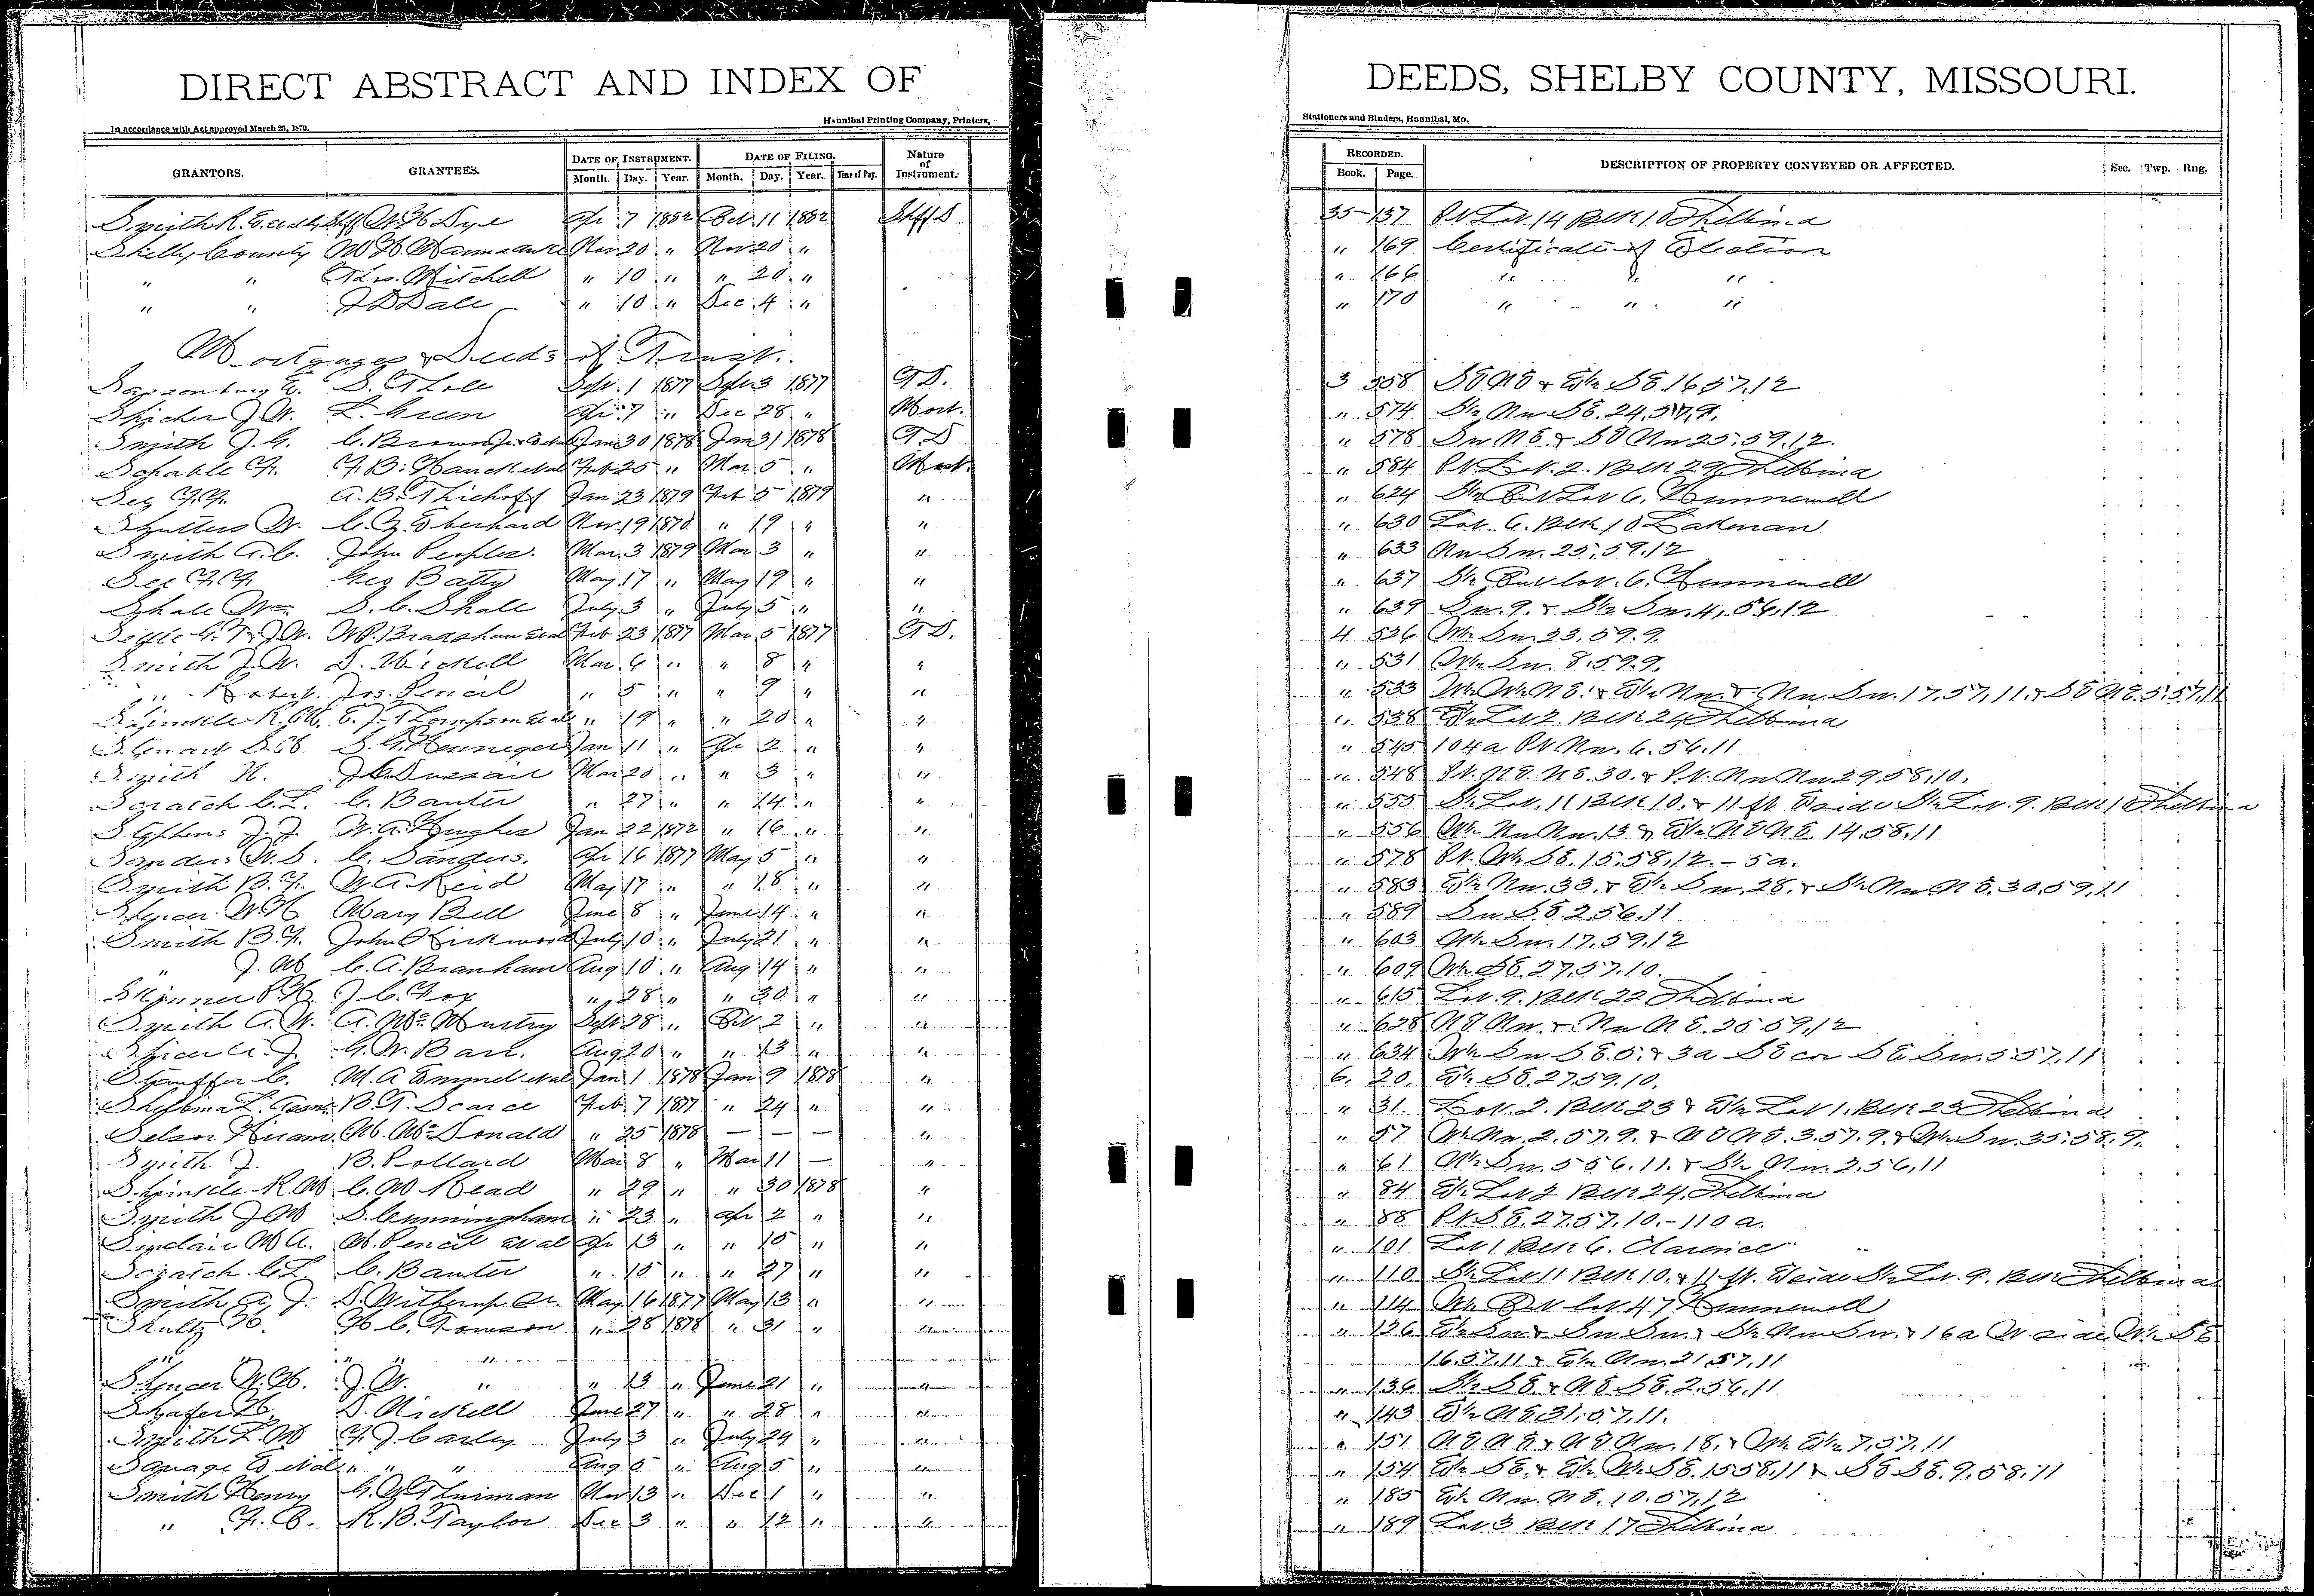 DIRECT ABSTRACT AND INDEX OF DEEDS, SHELBY COUNTY, MISSOURI.
In accordance with Act approved March 25, 1870. Hannibal Printing Company, Printers, Stationers and Binders, Hannibal, Mo.
GRANTORS. GRANTEES. DATE OF INSTRUMENT. Month. Day. Year. DATE OF FILING. Month. Day. Year. Time of Day. Nature of Instrument. RECORDED. Book. Page. DESCRIPTION OF PROPERTY CONVEYED OR AFFECTED. Sec. Twp. Rng.
Smith R. E. W. H. Dye Apr 7 1882 Oct 11 1882 Shff D 35 157 Pt Lot 14 Blk 10 Shelbina
Shelby County W. H. Nov 20 " Nov 20 " " 169 Certificate of Election
" " Thos. Mitchell " 10 " " 20 " " 166 " " "
" " J D Dale " 10 " Dec 4 " " 170 " " "
Mortgages & Deeds of Trust.
S. T Cole Sept. 1 1877 Sept 3 1877 T D. 3 558 SE NE & E½ SE 16 57, 12
J. W. L. Green Apr 7 " Dec 28 " Mort. " 574 S½ Nw SE. 24, 57, 9.
Smith J. G. C. Brown Jan 30 1878 Jan 31 1878 T D " 578 Sw NE. & SE Nw 25. 59. 12.
Schable F. F. B. Hauck et al Feb 25 " Mar 5 " Mort. " 584 Pt. Lot. 2. Blk 29 Shelbina
See F. F. A. B. Thiehoff Jan 23 1879 Feb 5 1879 " " 624 S½ Out Lot 6. Hunnewell
Shutters W. C. Z. Eberhard Nov 19 1878 " 19 " " " 630 Lot. 6. Blk 10 Lakenan
Smith A. C. John Peoples. Mar. 3 1879 Mar 3 " " " 633 Nw Sw. 25, 59. 12
See F. F. Geo Batty May 17 " May 19 " " " 637 S½ Out lot. 6. Hunnewell
Shale Wm S. C. Shale July 3 " July 5 " " " 639 Sw. 9. & S½ Sw. 4, 56, 12
Settle G. T & J. W. W P. Bradshaw et al Feb 23 1877 Mar. 5 1877 T D. 4 526 W½ Sw 23. 59. 9.
Smith J. W. D. Nickell Mar. 6 " " 8 " " " 531 W½ Sw. 8. 59. 9.
" Robert. Jos. Pencil " 5 " " 9 " " " 533 W½ W½ NE. & E½ Nw & Nw Sw. 17. 57, 11. & SE NE. 5. 57, 11
Shinkle R. M. E. J. Thompson et al " 19 " " 20 " " " 538 E½ Lot 2. Blk 24 Shelbina
Stewart S. M. S. G. Henniger Jan 11 " Apr 2 " " " 545 104 a Pt. Nw. 6. 56. 11
Smith N. Mar 20 " " 3 " " " 548 Pt. NE. NE. 30. & Pt. Nw Nw 29. 58, 10.
Scratch C. L. C. Banter " 27 " " 14 " " " 555 S½ Lot. 11 Blk 10. & 11 ft. E side S½ Lot. 9. Blk 1 Shelbina
Stephens J. J. W. A. Hughes Jan 22 1872 " 16 " " " 556 W½ Nw Nw. 13 & E½ NE NE 14. 58. 11
Sanders W. S. C. Sanders. Apr 16 1877 May 5 " " " 578 Pt. W½ SE. 15. 58, 12. - 5 a.
Smith B. F. W A Reid May 17 " " 18 " " " 583 E½ Nw. 33. & E½ Sw. 28. & S½ Nw NE. 30. 59, 11
Spencer W. H Mary Bell June 8 " June 14 " " " 589 Sw SE. 2 56. 11
Smith B. F. John Kirkwood July 10 " July 21 " " " 603 W½ Sw. 17. 59. 12
" J. M C. A. Branham Aug 10 " Aug 14 " " " 609 W½ SE. 27. 57. 10.
Skinner P. H. J. C. Fox " 28 " " 30 " " " 615 Lot. 9. Blk 22 Shelbina
Smith A. W. A. McMurtry Sept 28 " Oct 2 " " " 628 NE Nw. & Nw NE. 25 59, 12
A. J. G. W. Barr. Aug 20 " " 13 " " " 634 W½ Sw SE. 5. & 3 a SE cor SE Sw. 5. 57. 11
Stauffer C. M. A. et al Jan 1 1878 Jan 9 1878 " 6. 20. E½ SE. 27. 59. 10.
Shelbina L. Assn. B. T. Scarce Feb 7 1877 " 24 " " " 31. Lot. 2. Blk 23 & E½ Lot 1. Blk 23 Shelbina
Selson Hiram. M. McDonald " 25 1878 — — — " " 57 W½ Nw. 2. 57. 9. & NE NE. 3. 57. 9. & W½ Sw. 35. 58. 9.
Smith J. B. Pollard Mar 8 " Mar 11 — " " 61 W½ Sw. 5 56. 11. & S½ Nw. 2. 56, 11
Shinkle R. M C. M Read " 29 " " 30 1878 " " 84 E½ Lot 2 Blk 24. Shelbina
Smith J M S. Cunningham " 23 " Apr 2 " " " 88 Pt. SE. 27. 57. 10. - 110 a.
Sinclair M A. M. Pencil et al Apr 13 " " 15 " " " 101 Lot 1 Blk 6. Clarence
Scratch C. L. C. Banter " 15 " " 27 " " " 110 S½ Lot 11 Blk 10. & 11 ft. E side S½ Lot. 9. Blk Shelbina
Smith A. J. May 16 1877 May 13 " " " 114 W½ Out lot 47 Hunnewell
Shultz H. H C. Tomson " 28 1878 " 31 " " " 126 E½ Sw & Sw Sw. & S½ Nw Sw. & 16 a W side W½ SE
" " " " " 16. 57. 11 & E½ Nw. 21 57. 11
Spencer W. M. J. W. " " 13 " June 21 " " " 136 S½ SE. & NE SE. 2. 56. 11
Shafer H. D. Nickell June 27 " " 28 " " " 143 E½ NE 31. 57. 11.
Smith L. M F. J. July 3 " July 24 " " " 151 NE NE & NE Nw. 18. & W½ E½ 7. 57. 11
Savage E et al " " " Aug 5 " Aug 5 " " " 154 E½ SE. & E½ W½ SE. 15 58. 11 & SE SE. 9. 58. 11
Smith Henry Nov 13 " Dec 1 " " " 185 E½ Nw. NE. 10. 57, 12
" F. C. R. B. Taylor Dec 3 " " 12 " " " 189 Lot 3 Blk 17 Shelbina